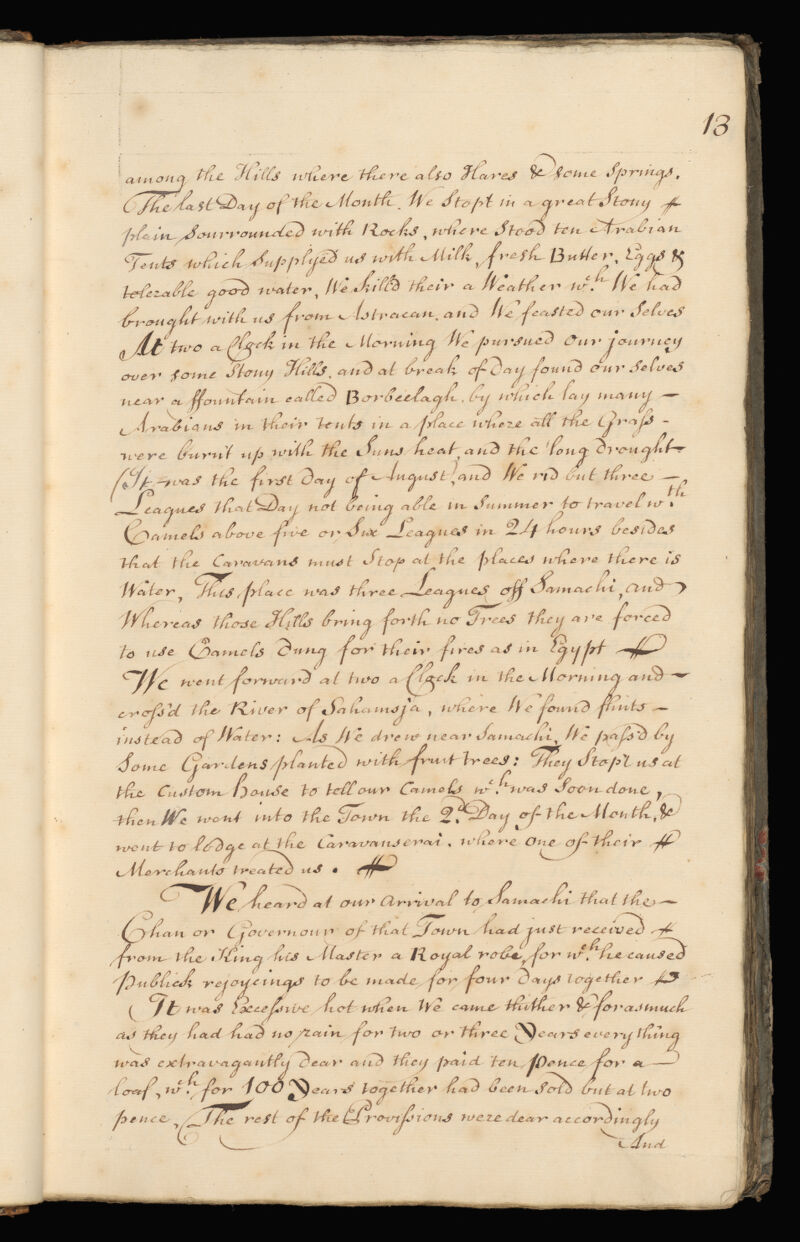 13
among the Hills where there also Hares & some Springs.
The last Day of the Month. We Stopt in a great Stony
plain Sourrounded with Rocks, where Stood ten Arabian
Tents which Supplyed us with Milk, fresh Butter, Eggs &
tolerable good water, We kill'd their a Weather wch. We had
brought with us from Astracan. and We feasted our Selves
At two a Clock in the Morning We pursued our journey
over some Stony Hills. and at break of Day found our selves
near a ffountain called Borbeelagh. by which lay many —
Arabians in their tents in a place where all the Grass -
were burn't up with the Suns heat, and the long drought
(It was the first Day of August) and We rid but three —
Leagues that Day not being able in Summer to travel wth.
Camels above five or Six Leagues in 24 hours besides
that the Caravans must Stop at the places where there is
Water, This place was three Leagues off Samachi, and
Whereas those Hills bring forth no Trees they are forced
to use Camels Dung for their fires as in Egypt
We went forward at two a Clock in the Morning and —
cross'd the River of Sahamoja, where We found flints —
instead of Water: As We drew near Samachi, We pass'd by
Some Gardens planted with fruit trees: They Stopt us at
the Custom house to tell our Camels wch. was Soon done,
then We went into the Town the 2d. Day of the Month, &
went to lodge at the Caravanserai. where one of their
Merchants treated us.
We heard at our Arrival to Samachi that the —
Chan or Governour of that Town had just received
from the King his Master a Royal robe, for wch. he caused
Publick rejoycings to be made for four Days together
It was Excessive hot when We came thither & forasmuch
as they had had no rain for two or three Years every thing
was extravagantly dear and they paid ten Pence for a —
loaf, wch. for 100 Years together had been sold but at two
pence, The rest of the Provissions were dear accordingly
And